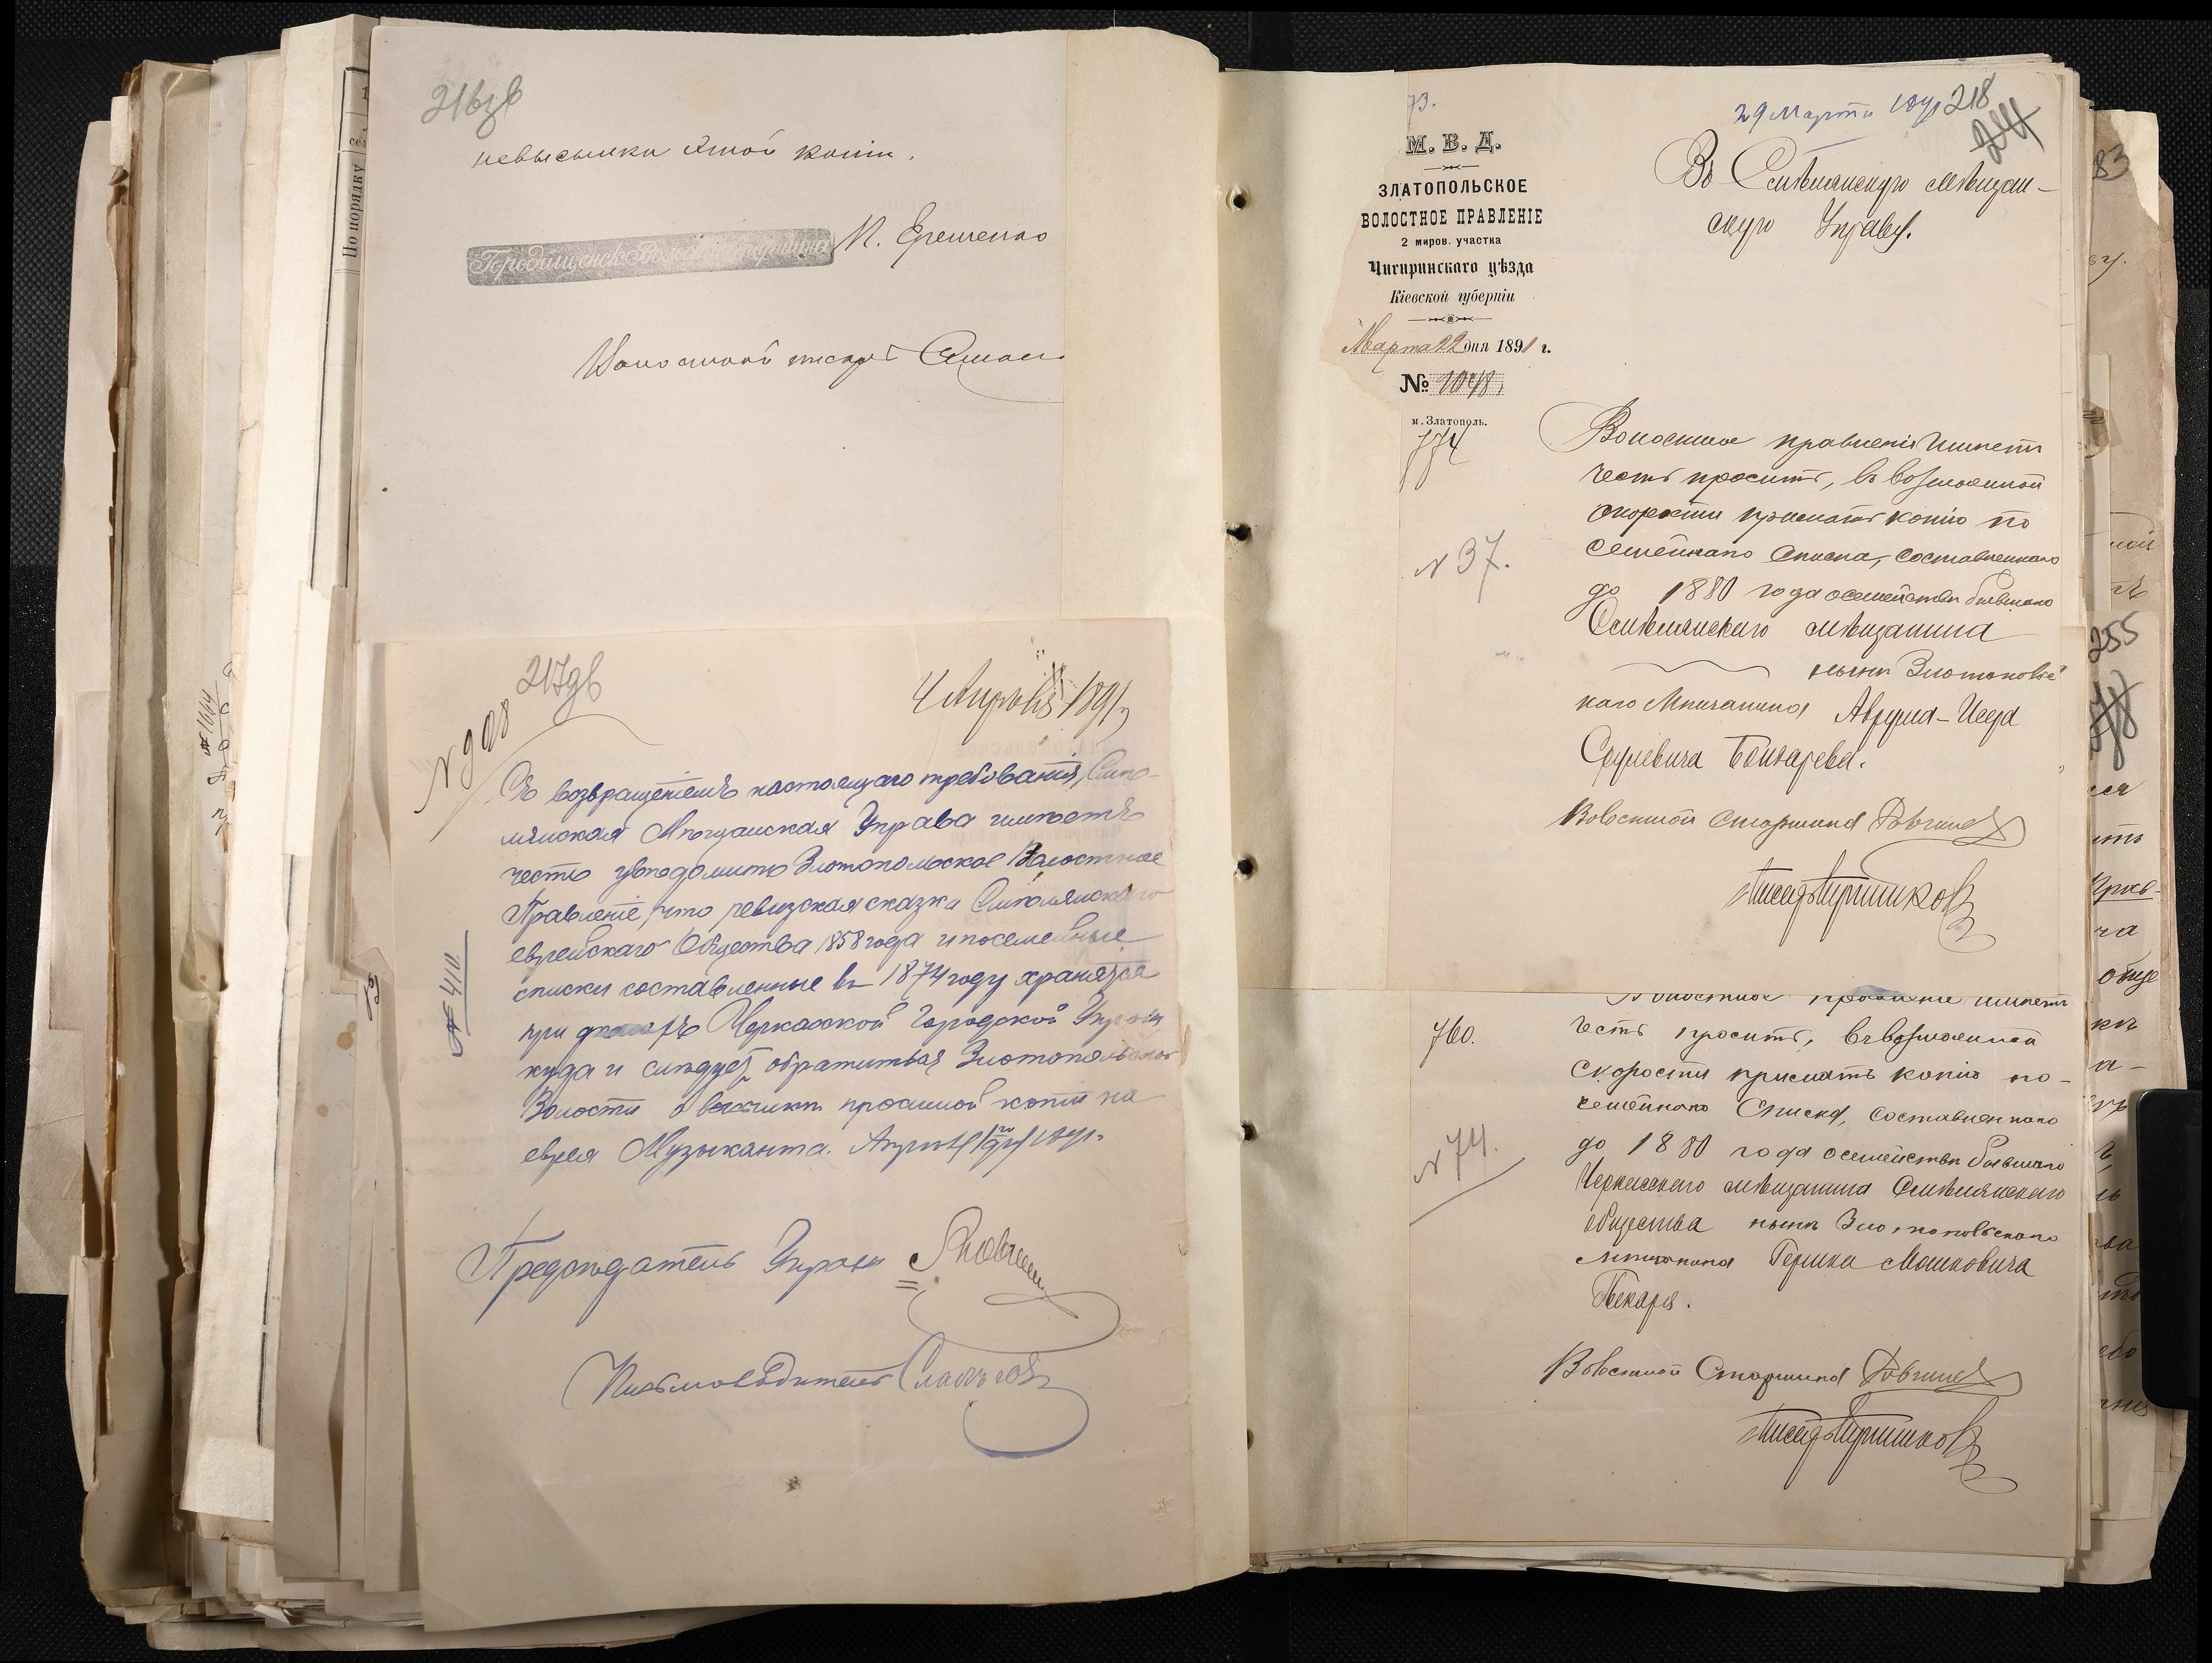 216зв
невысылки этой копіи.
Городищенск. Волост. Старшина
Волостной писарь
217зв
4 Апрѣля 1891 г
№ 908
Съ возвращеніемъ настоящаго требованія, Смѣ-
лянская Мѣщанская Управа имѣетъ
честь увѣдомить Златопольское Волостное
Правленіе, что ревизская сказка Смѣлянскаго
еврейскаго Общества 1858 года и посемейные
списки составленные въ 1874 году хранятся
№ 410
при Черкасской Городской Управѣ
куда и слѣдуетъ обратиться Златопольской
Волости о высылкѣ просимой копіи на
еврея Музыканта. Апрѣля 1891 г.
Предсѣдатель Управы
Письмоводитель
По порядку
73.
29 Марта 1891 218
М. В. Д.
ЗЛАТОПОЛЬСКОЕ
ВОЛОСТНОЕ ПРАВЛЕНІЕ
2 миров. участка
Чигиринскаго уѣзда
Кіевской губерніи
Марта 22 дня 1891 г.
№ 1048
м. Златополь.
774
Въ Смѣлянскую мѣщан-
скую Управу.
Волостное правленіе имѣетъ
честь просить, въ возможной
скорости прислать копію по
семейнаго списка, составленнаго
№ 37.
до 1880 года о семействѣ бывшаго
Смѣлянскаго мѣщанина
нынѣ Златопольс
каго Мѣщанина Аврума-Иегуда
Сруліевича Бондарева.
Волостной Старшина
Писарь
Волостное правленіе имѣетъ
760.
честь просить, въ возможной
скорости прислать копію по-
семейнаго Списка, составленнаго
№ 74.
до 1880 года о семействѣ бывшаго
Черкасскаго мѣщанина Смѣлянскаго
общества нынѣ Златопольскаго
мѣщанина Гершка Мошковича
Пекаря.
Волостной Старшина
Писарь
83
255